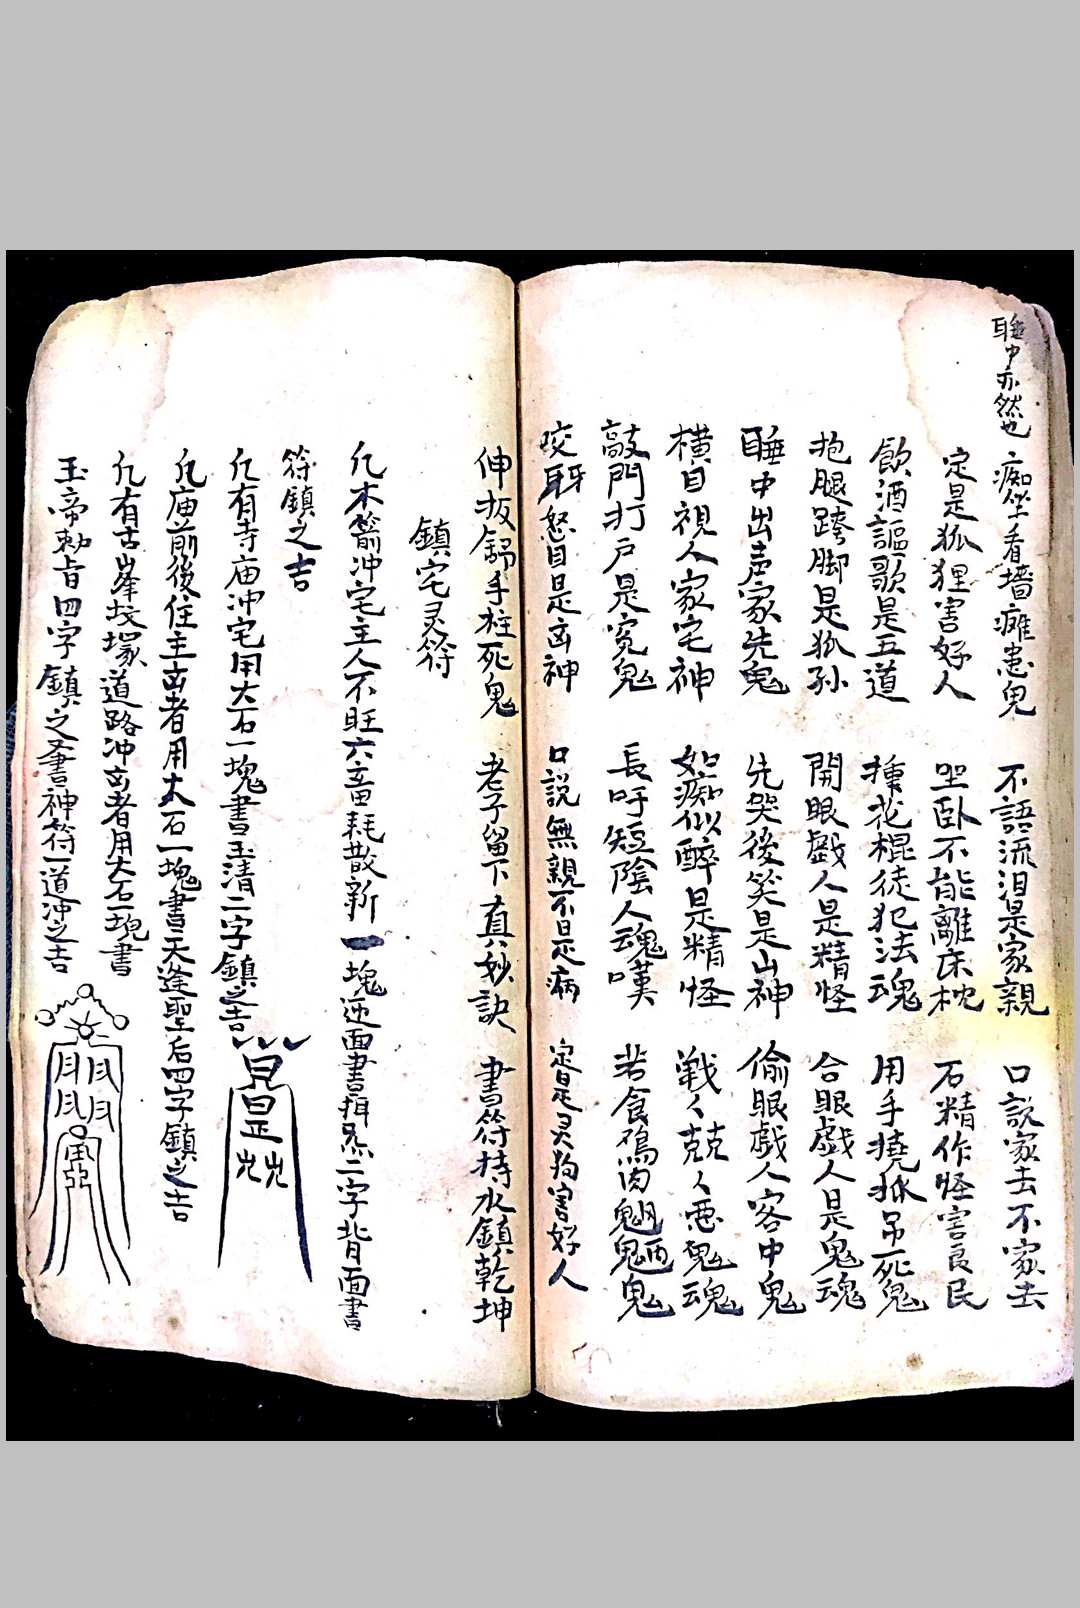 睡中亦然也
痴坐看墙癱患鬼 不語流泪是家親 口説家去不家去
定是狐狸害好人 坐卧不能離床枕 石精作怪害良民
飲酒謳歌是五道 種花棍徒犯法魂 用手撓抓吊死鬼
抱腿跨脚是狐孙 開眼戯人是精怪 合眼戯人是鬼魂
睡中出声家先鬼 先哭後笑是山神 偷眼戯人客中鬼
横目視人家宅神 如痴似醉是精怪 戦々兢々悪鬼魂
敲門打户是寃鬼 長吁短陰人魂嘆 若食鳮肉魍魎鬼
咬牙怒目是凶神 口説無親不是病 定是灵狗害好人
伸扳舒手柱死鬼 老子留下真妙訣 書符持水鎮乾坤
鎮宅灵符
凡木箭冲宅主人不旺六畜耗散新一塊迎面書二字背面書
符鎮之吉
凡有寺庙冲宅用大石一塊書玉清二字鎮之吉
凡庙前後住主凶者用大石一塊書天逢聖后四字鎮之吉
凡有古峯坟塚道路冲凶者用大石一塊書
玉帝勅旨四字鎮之書神符一道冲之吉